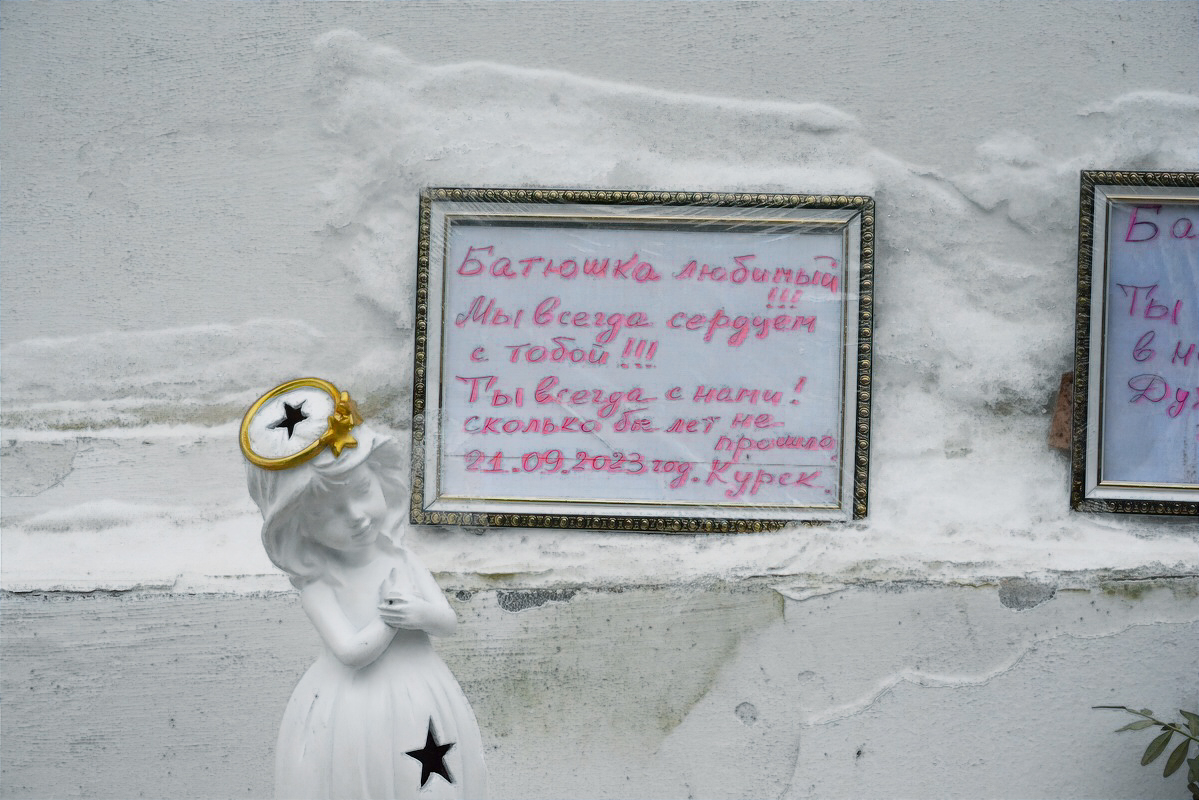 Батюшка любимый
!!!
Мы всегда сердцем
с тобой !!!
Ты всегда с нами!
сколько бы лет не-
прошло,
21.09.2023 год. Курск.
Ба
Ты
в н
Ду